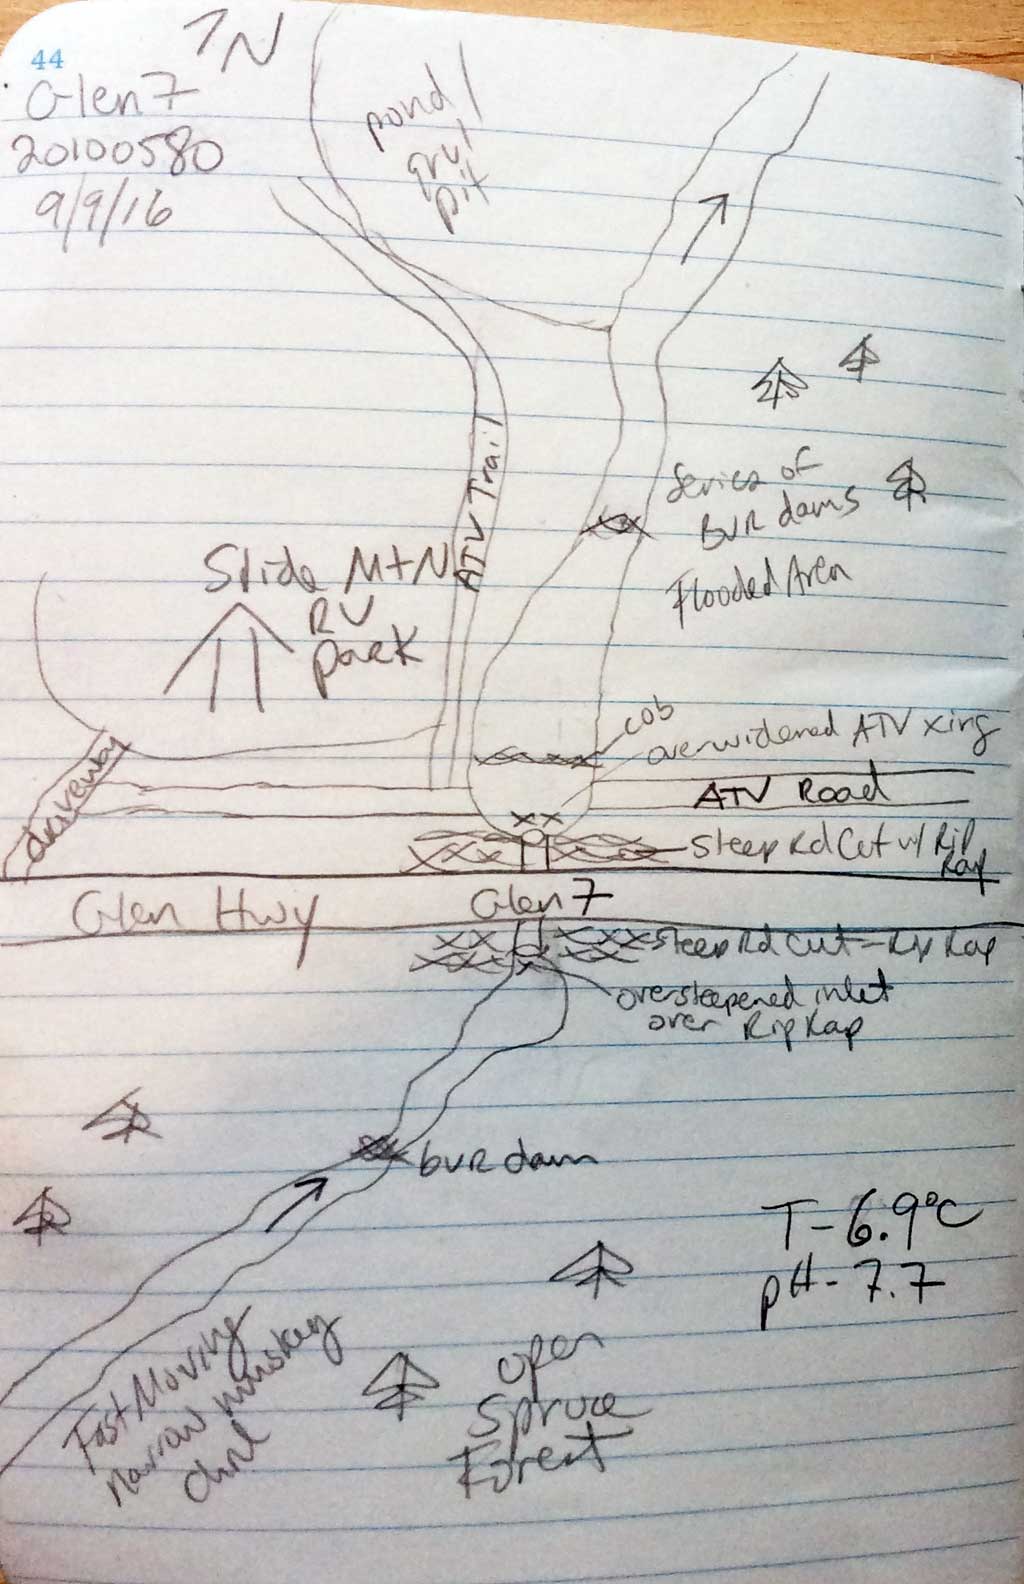 44
N
Glen 7
20100580
9/9/16
pond/
grvl
pit
ATV Trail
Series of
BVR dams
Flooded Area
Slide Mtn
RV
Park
cob
overwidened ATV xing
driveway
ATV Road
Steep Rd Cut w/ Rip
Rap
Glen Hwy
Glen 7
Steep Rd Cut - Rip Rap
oversteepened inlet
over Rip Rap
bvr dam
T- 6.9°C
pH- 7.7
Fast Moving
narrow
chnl
open
Spruce
Forest